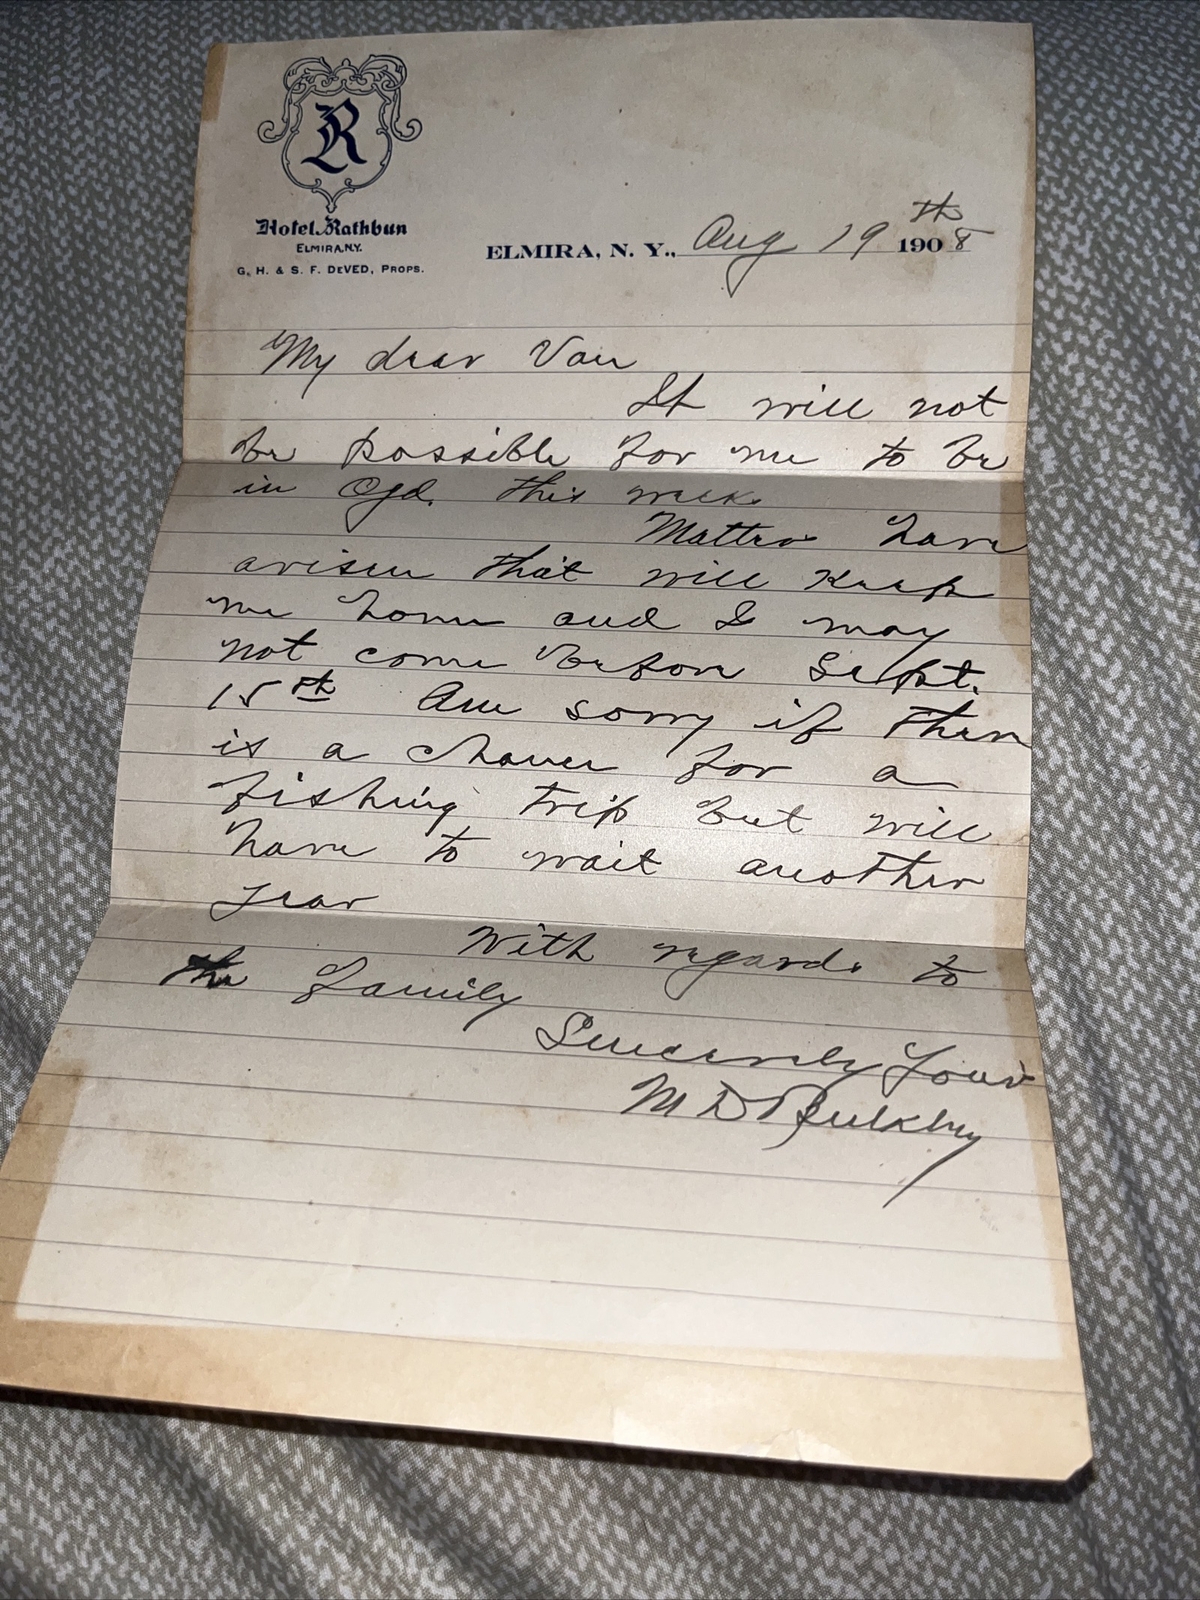 R
Hotel Rathbun
ELMIRA, N.Y.
G. H. & S. F. DEVED, PROPS.
ELMIRA, N. Y., Aug 19th 1908
My dear Van
It will not
be possible for me to be
in Ogd. this week.
Matters have
arisen that will keep
me home and I may
not come before Sept.
15th Am sorry if there
is a chance for a
fishing trip but will
have to wait another
year
With regards to
the family
Sincerely Yours
M D Bulkley